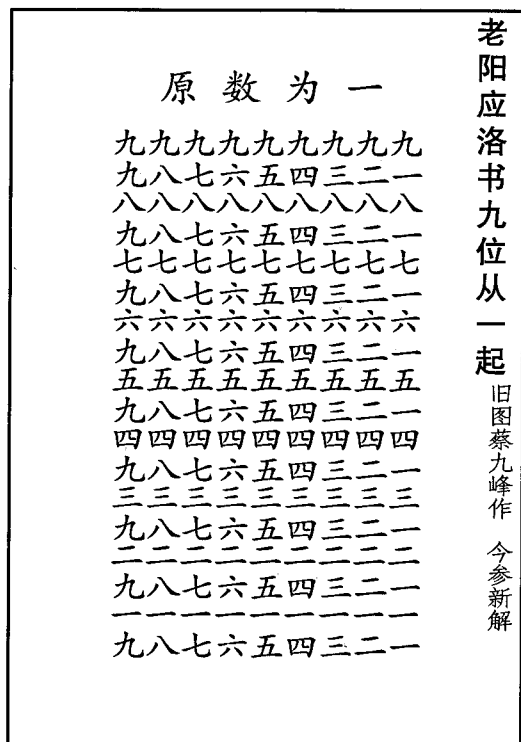 老阳应洛书九位从一起
旧图蔡九峰作 今参新解
原数为一
九九九九九九九九九
九八七六五四三二一
八八八八八八八八八
九八七六五四三二一
七七七七七七七七七
九八七六五四三二一
六六六六六六六六六
九八七六五四三二一
五五五五五五五五五
九八七六五四三二一
四四四四四四四四四
九八七六五四三二一
三三三三三三三三三
九八七六五四三二一
二二二二二二二二二
九八七六五四三二一
一一一一一一一一一
九八七六五四三二一